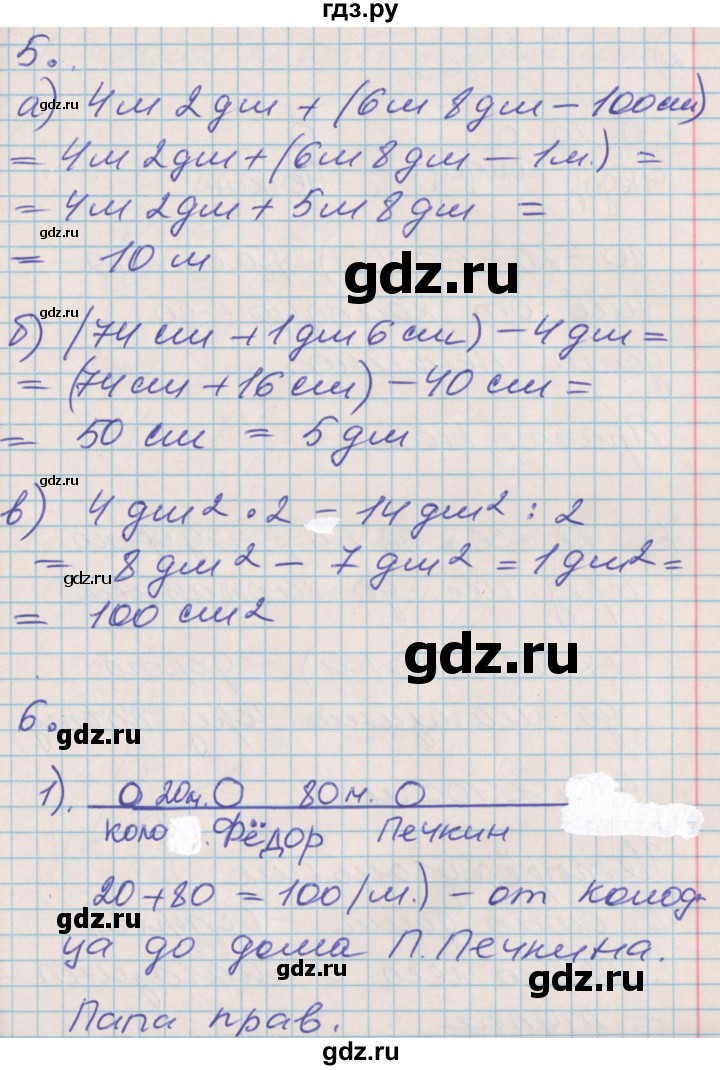 гдз.ру
5.
а) 4м 2дм + (6м 8дм - 100см)
gdz.ru
= 4м 2дм + (6м 8дм - 1м.) =
= 4м 2дм + 5м 8дм =
gdz.ru
= 10 м
gdz.ru
gdz.ru
б) (74 см + 1дм 6 см) - 4дм =
= (74см + 16 см) - 40 см =
= 50 см = 5 дм
gdz.ru
в) 4 дм² · 2 - 14 дм² : 2
= 8 дм² - 7 дм² = 1дм² =
gdz.ru
= 100 см2
gdz.ru
6.
gdz.ru
1). 20м. 80 м.
коло . Фёдор Печкин
20 + 80 = 100 (м.) - от колод-
gdz.ru
ца до дома П. Печкина.
gdz.ru
gdz.ru
Папа прав.
gdz.ru